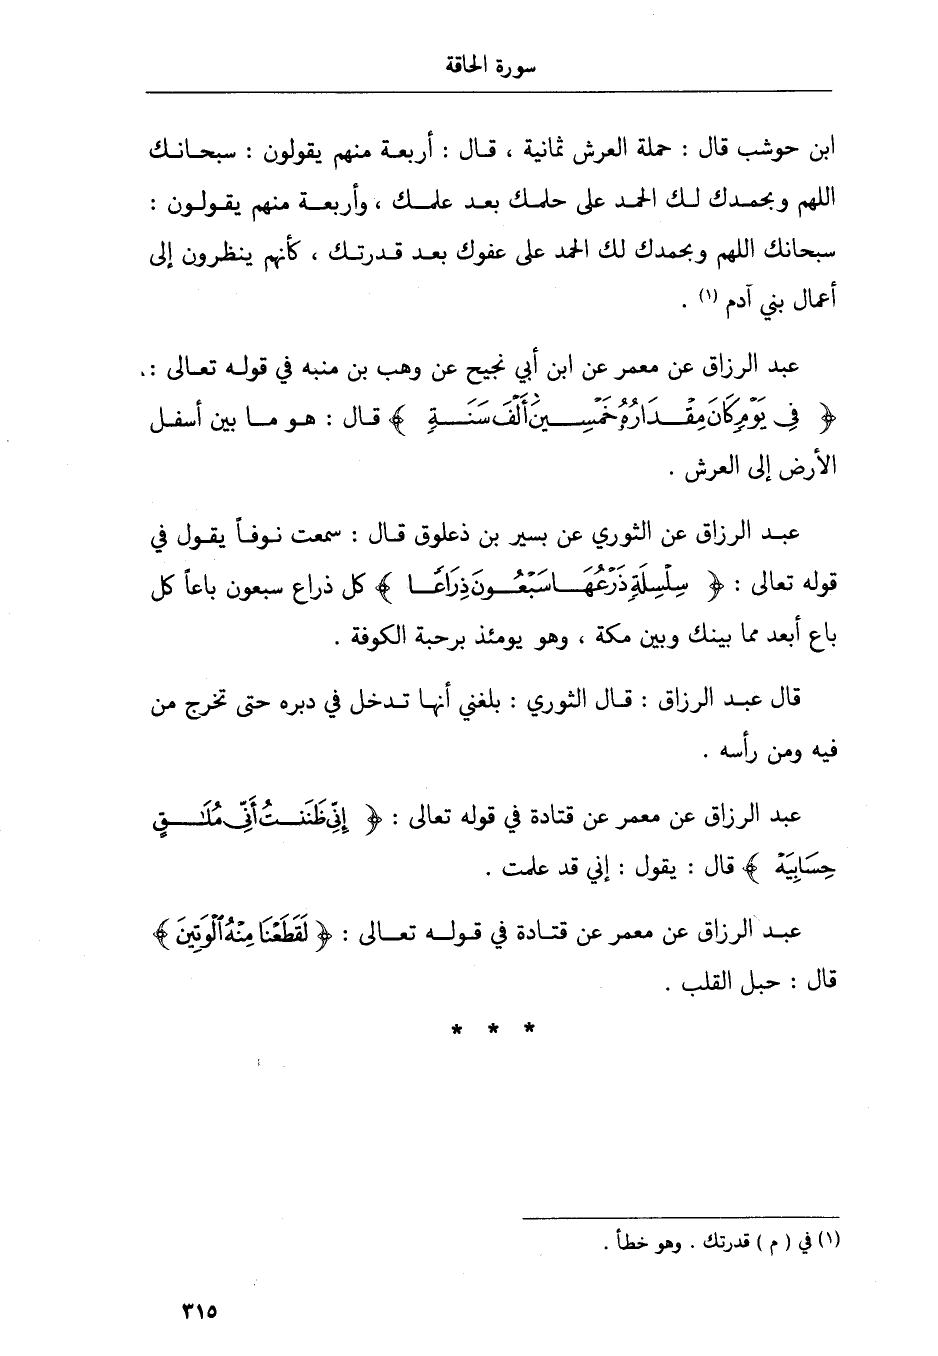 سورة الحاقة
ابن حوشب قال : حملة العرش ثمانية ، قال : أربعة منهم يقولون : سبحانك
اللهم وبحمدك لك الحمد على حلمك بعد علمك ، وأربعة منهم يقولون :
سبحانك اللهم وبحمدك لك الحمد على عفوك بعد قدرتك ، كأنهم ينظرون إلى
أعمال بني آدم (١) .
عبد الرزاق عن معمر عن ابن أبي نجيح عن وهب بن منبه في قوله تعالى :
﴿ فِي يَوْمٍ كَانَ مِقْدَارُهُ خَمْسِينَ أَلْفَ سَنَةٍ ﴾ قال : هو ما بين أسفل
الأرض إلى العرش .
عبد الرزاق عن الثوري عن بسير بن ذعلوق قال : سمعت نوفاً يقول في
قوله تعالى : ﴿ سِلْسِلَةٍ ذَرْعُهَا سَبْعُونَ ذِرَاعًا ﴾ كل ذراع سبعون باعاً كل
باع أبعد مما بينك وبين مكة ، وهو يومئذ برحبة الكوفة .
قال عبد الرزاق : قال الثوري : بلغني أنها تدخل في دبره حتى تخرج من
فيه ومن رأسه .
عبد الرزاق عن معمر عن قتادة في قوله تعالى : ﴿ إِنِّي ظَنَنتُ أَنِّي مُلَٰقٍ
حِسَابِيَهْ ﴾ قال : يقول : إني قد علمت .
عبد الرزاق عن معمر عن قتادة في قوله تعالى : ﴿ لَقَطَعْنَا مِنْهُ ٱلْوَتِينَ ﴾
قال : حبل القلب .
* * *
(١) في ( م ) قدرتك . وهو خطأ .
٣١٥